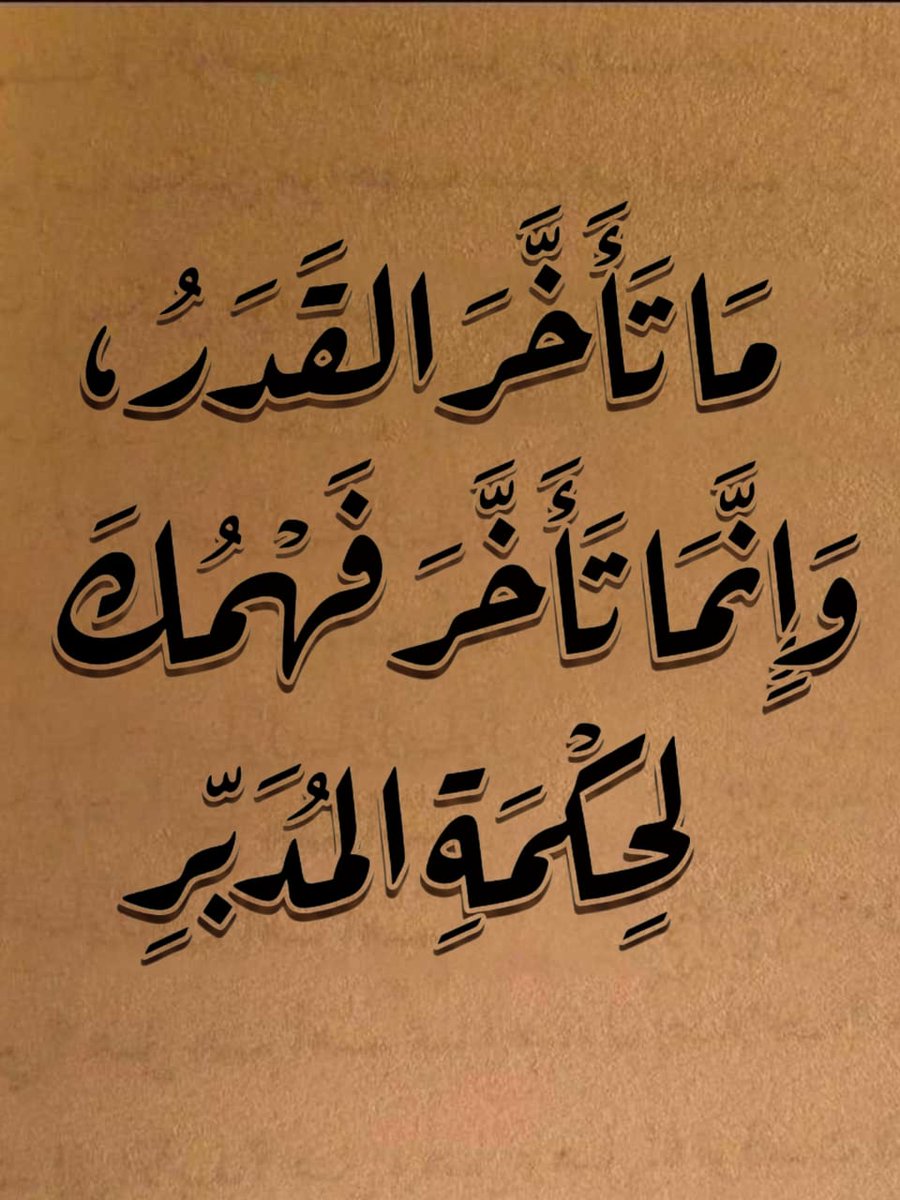 مَا تَأَخَّرَ القَدَرُ،
وَإِنَّمَا تَأَخَّرَ فَهْمُكَ
لِحِكْمَةِ المُدَبِّرِ